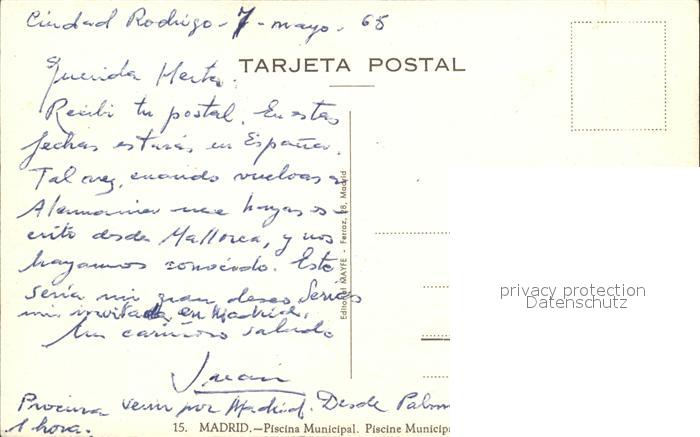 Ciudad Rodrigo - 7 - mayo - 65
TARJETA POSTAL
Querida Herta.
Recibí tu postal. En estas
fechas estarás en España.
Tal vez, cuando vuelvas a
Alemania me hayas es-
crito desde Mallorca, y nos
hayamos conocido. Este
sería mi gran deseo. Serías
mi invitada en Madrid.
Un cariñoso saludo
Juan
Procura venir por Madrid. Desde Palm
1 hora.
15. MADRID.—Piscina Municipal. Piscine Municipa
Editorial MAYFE - Ferraz, 28, Madrid
privacy protection
Datenschutz